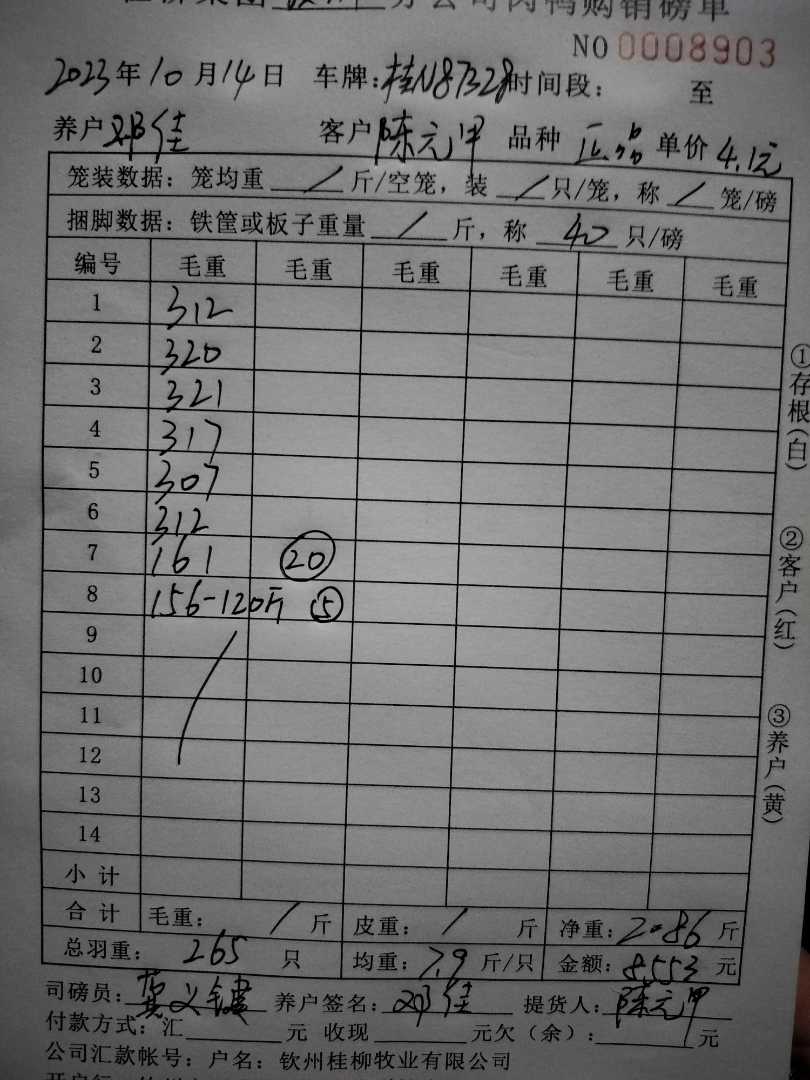 分公司肉鸭购销磅单
NO 0008903
2023年10月14日 车牌:桂N87328时间段: 至
养户 邓佳 客户 陈元甲 品种 单价 4.1元
笼装数据:笼均重 / 斤/空笼,装 / 只/笼,称 / 笼/磅
捆脚数据:铁筐或板子重量 / 斤,称 40 只/磅
编号 毛重 毛重 毛重 毛重 毛重 毛重
1 312
2 320
3 321
4 317
5 307
6 312
7 161 20
8 156-120斤 15
9
10
11
12
13
14
小计
合计 毛重: / 斤 皮重: / 斤 净重: 2086 斤
总羽重: 265 只 均重: 7.9 斤/只 金额: 8553 元
司磅员: 龚义健 养户签名: 邓佳 提货人: 陈元甲
付款方式:汇 元 收现 元欠(余): 元
公司汇款帐号:户名:钦州桂柳牧业有限公司
①存根(白)
②客户(红)
③养户(黄)